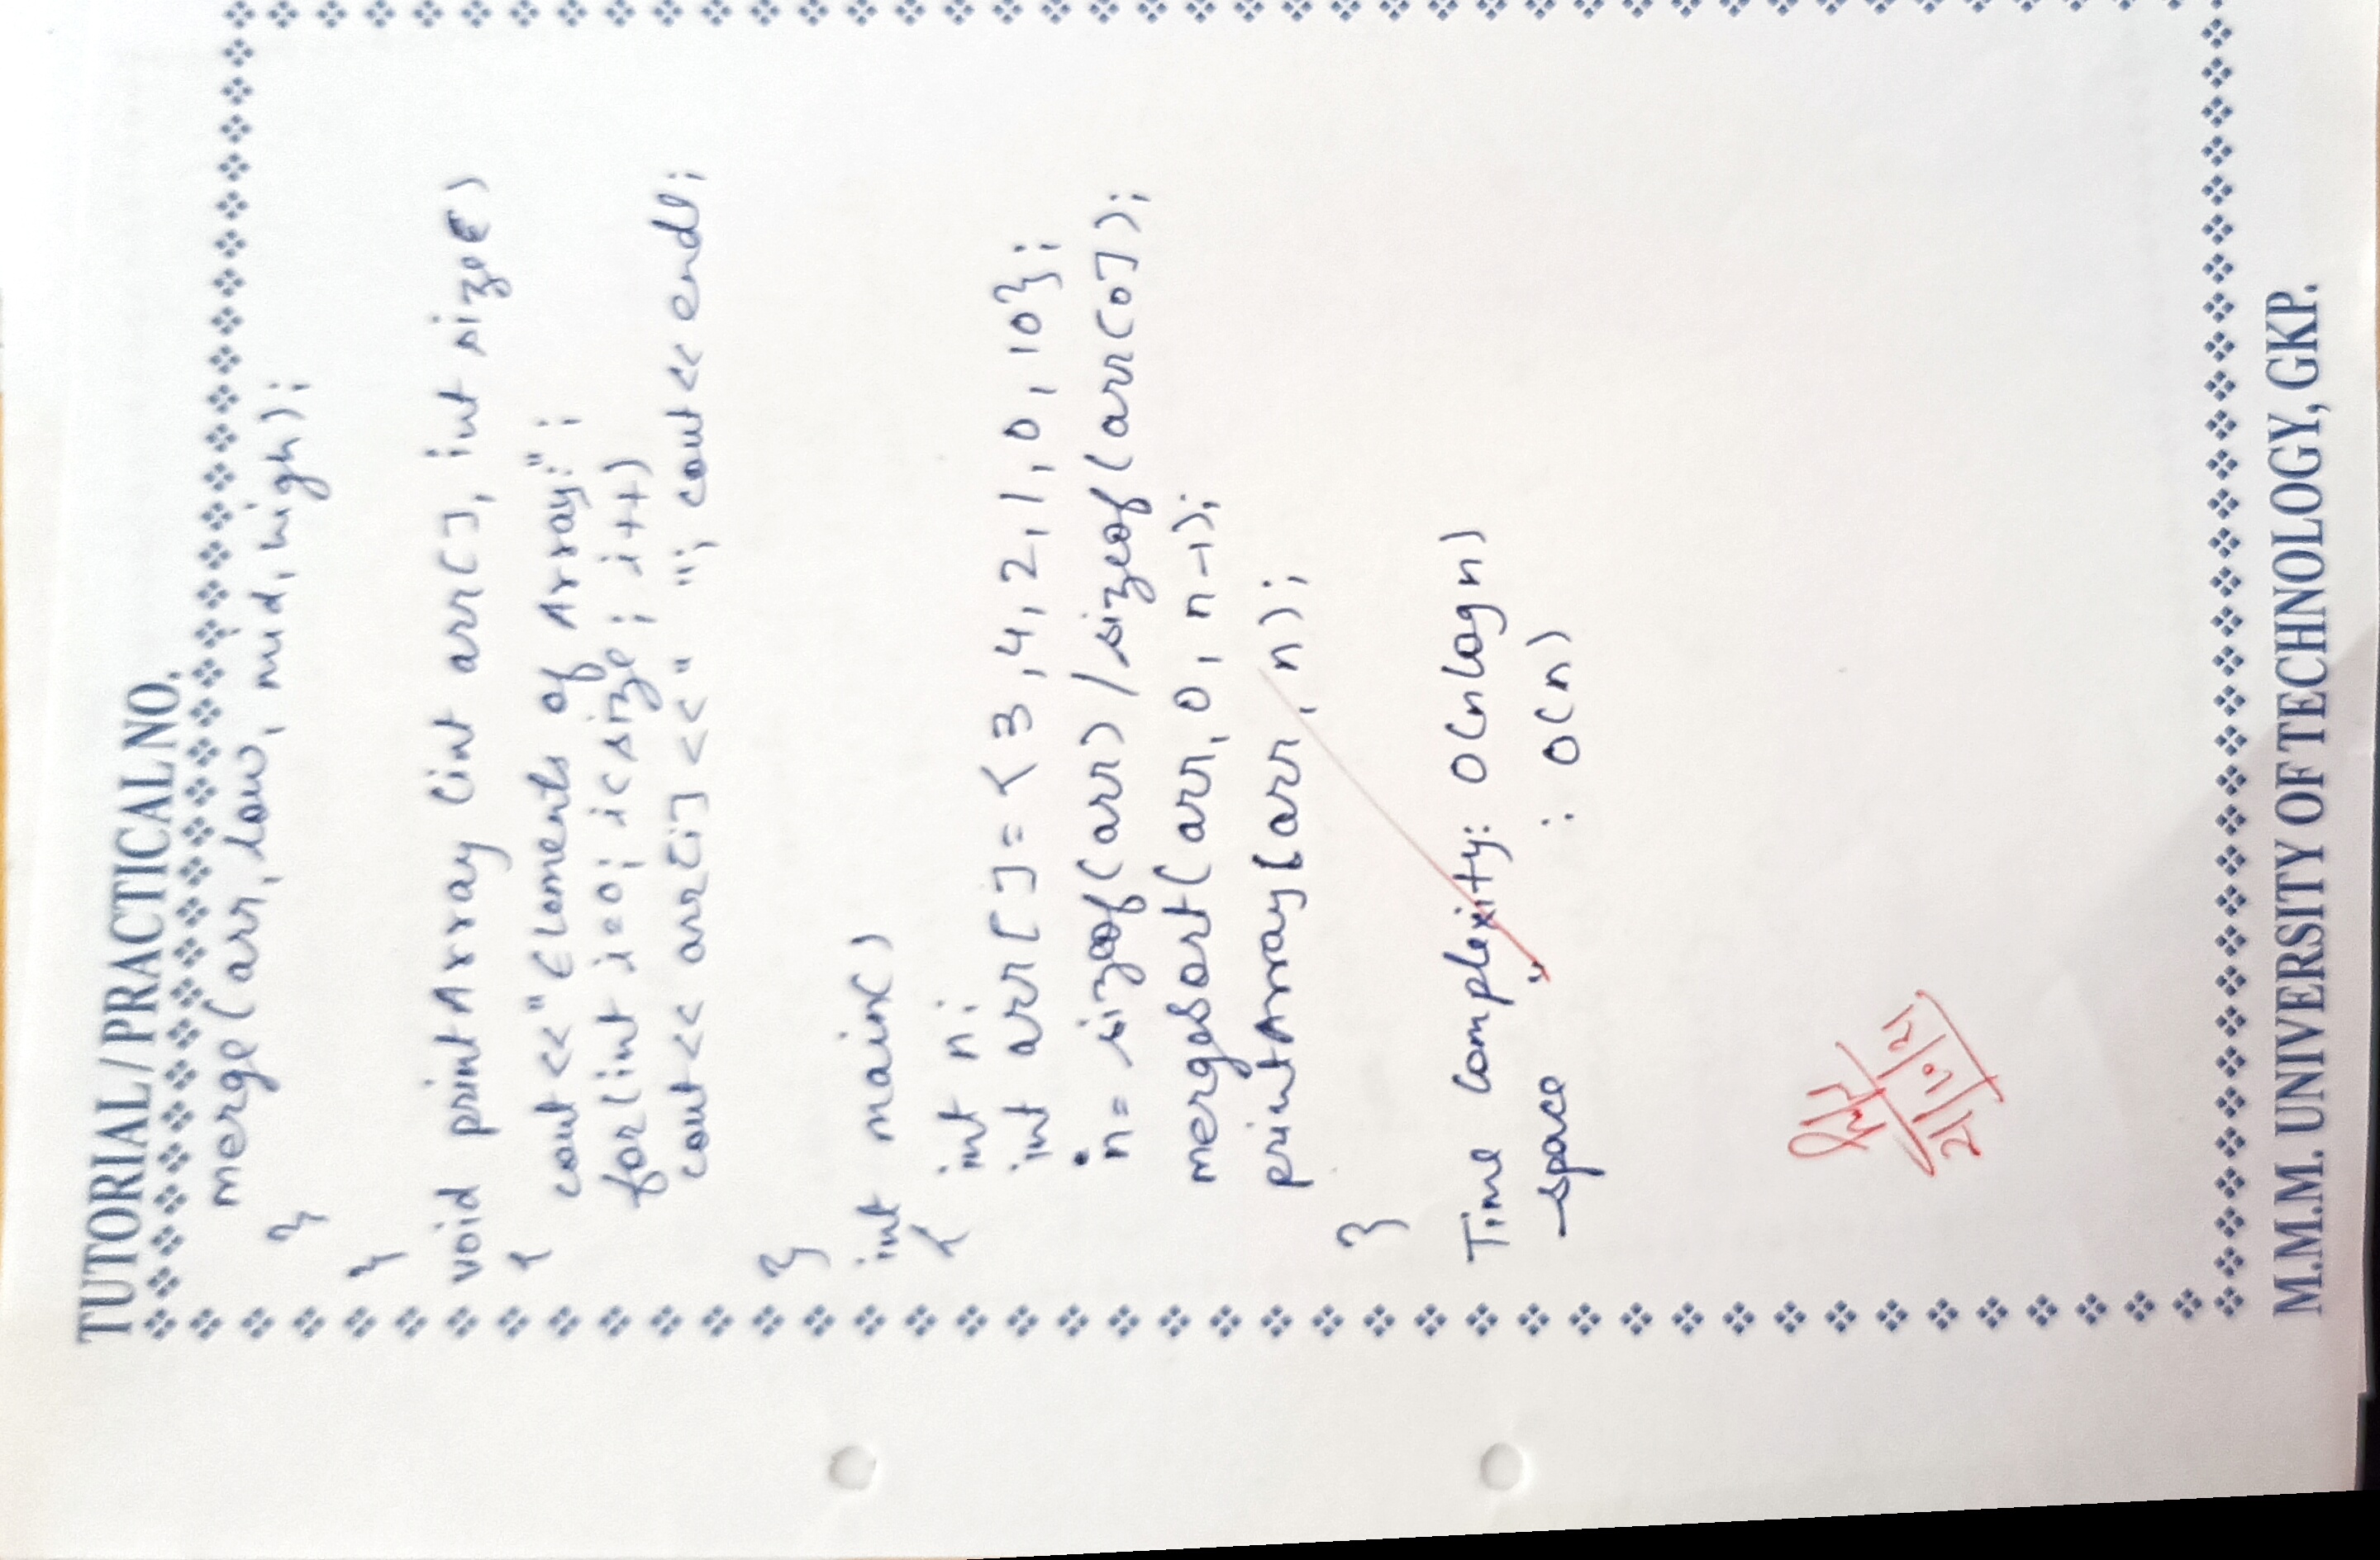 TUTORIAL / PRACTICAL NO.
merge(arr, low, mid, high);
}
}
void printArray (int arr[], int size)
{
cout << "Elements of Array:";
for(int i=0; i<size; i++)
cout << arr[i] << " "; cout << endl;
}
int main()
{
int n;
int arr[] = {3,4,2,1,0,10};
n = sizeof(arr)/sizeof(arr[0]);
mergeSort(arr, 0, n-1);
printArray(arr, n);
}
Time Complexity: O(nlogn)
space " : O(n)
21/10/21
M.M.M. UNIVERSITY OF TECHNOLOGY, GKP.